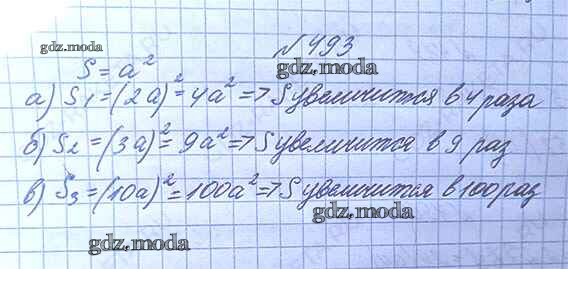 gdz.moda
№ 493
S = a²
gdz.moda
а) S₁ = (2a)² = 4a² => S увеличится в 4 раза
б) S₂ = (3a)² = 9a² => S увеличится в 9 раз
в) S₃ = (10a)² = 100a² => S увеличится в 100 раз
gdz.moda
gdz.moda